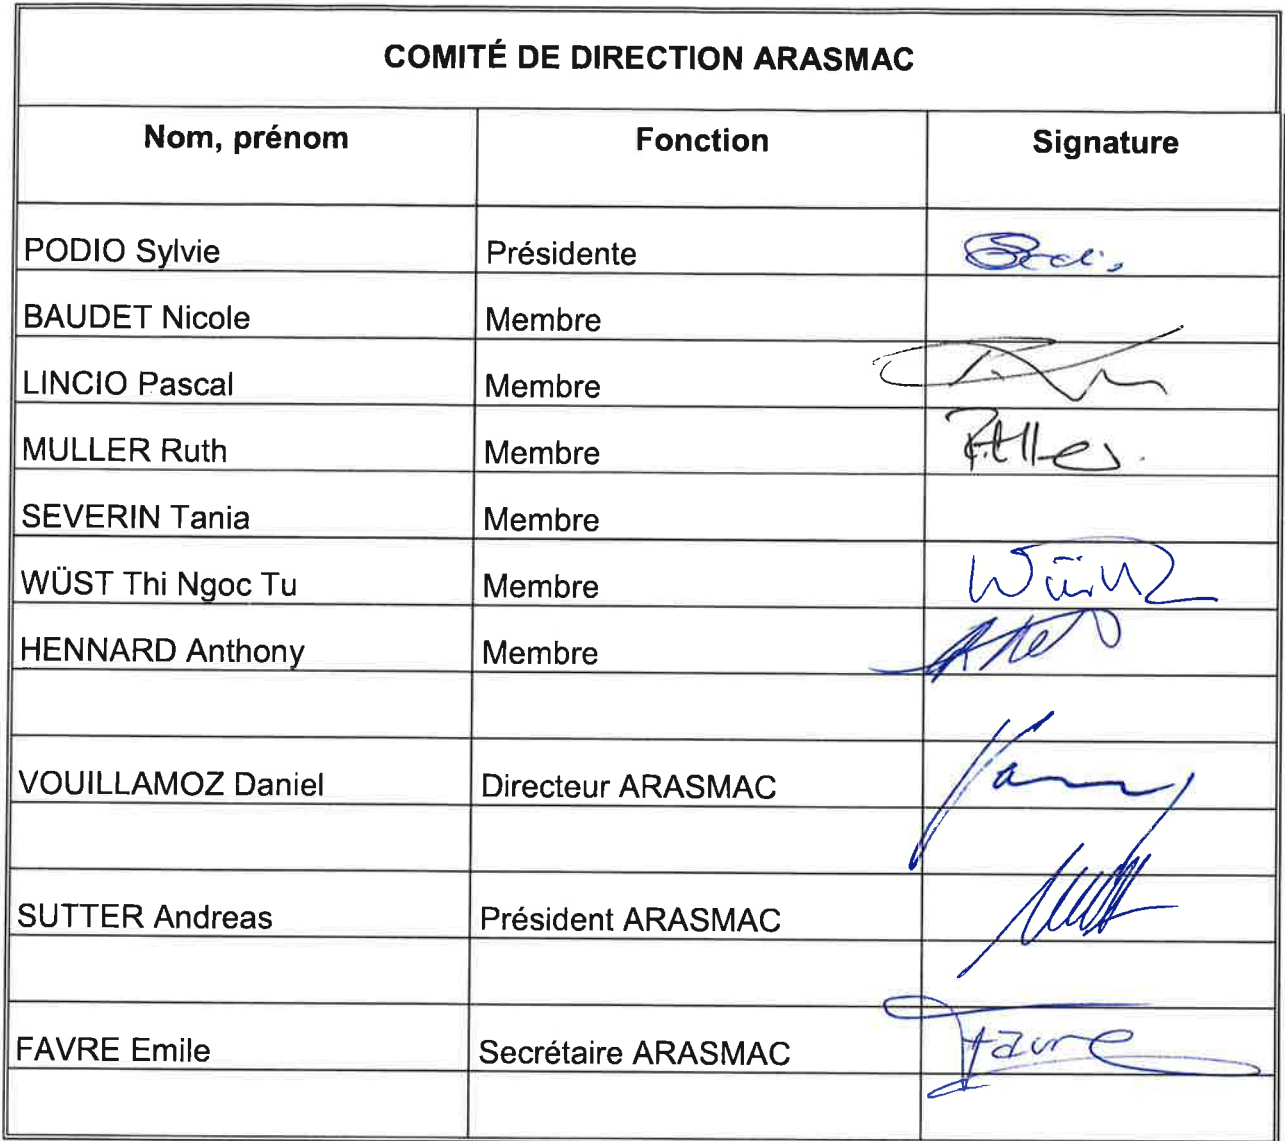 COMITÉ DE DIRECTION ARASMAC
Nom, prénom Fonction Signature
PODIO Sylvie Présidente
BAUDET Nicole Membre
LINCIO Pascal Membre
MULLER Ruth Membre
SEVERIN Tania Membre
WÜST Thi Ngoc Tu Membre
HENNARD Anthony Membre
VOUILLAMOZ Daniel Directeur ARASMAC
SUTTER Andreas Président ARASMAC
FAVRE Emile Secrétaire ARASMAC Favre